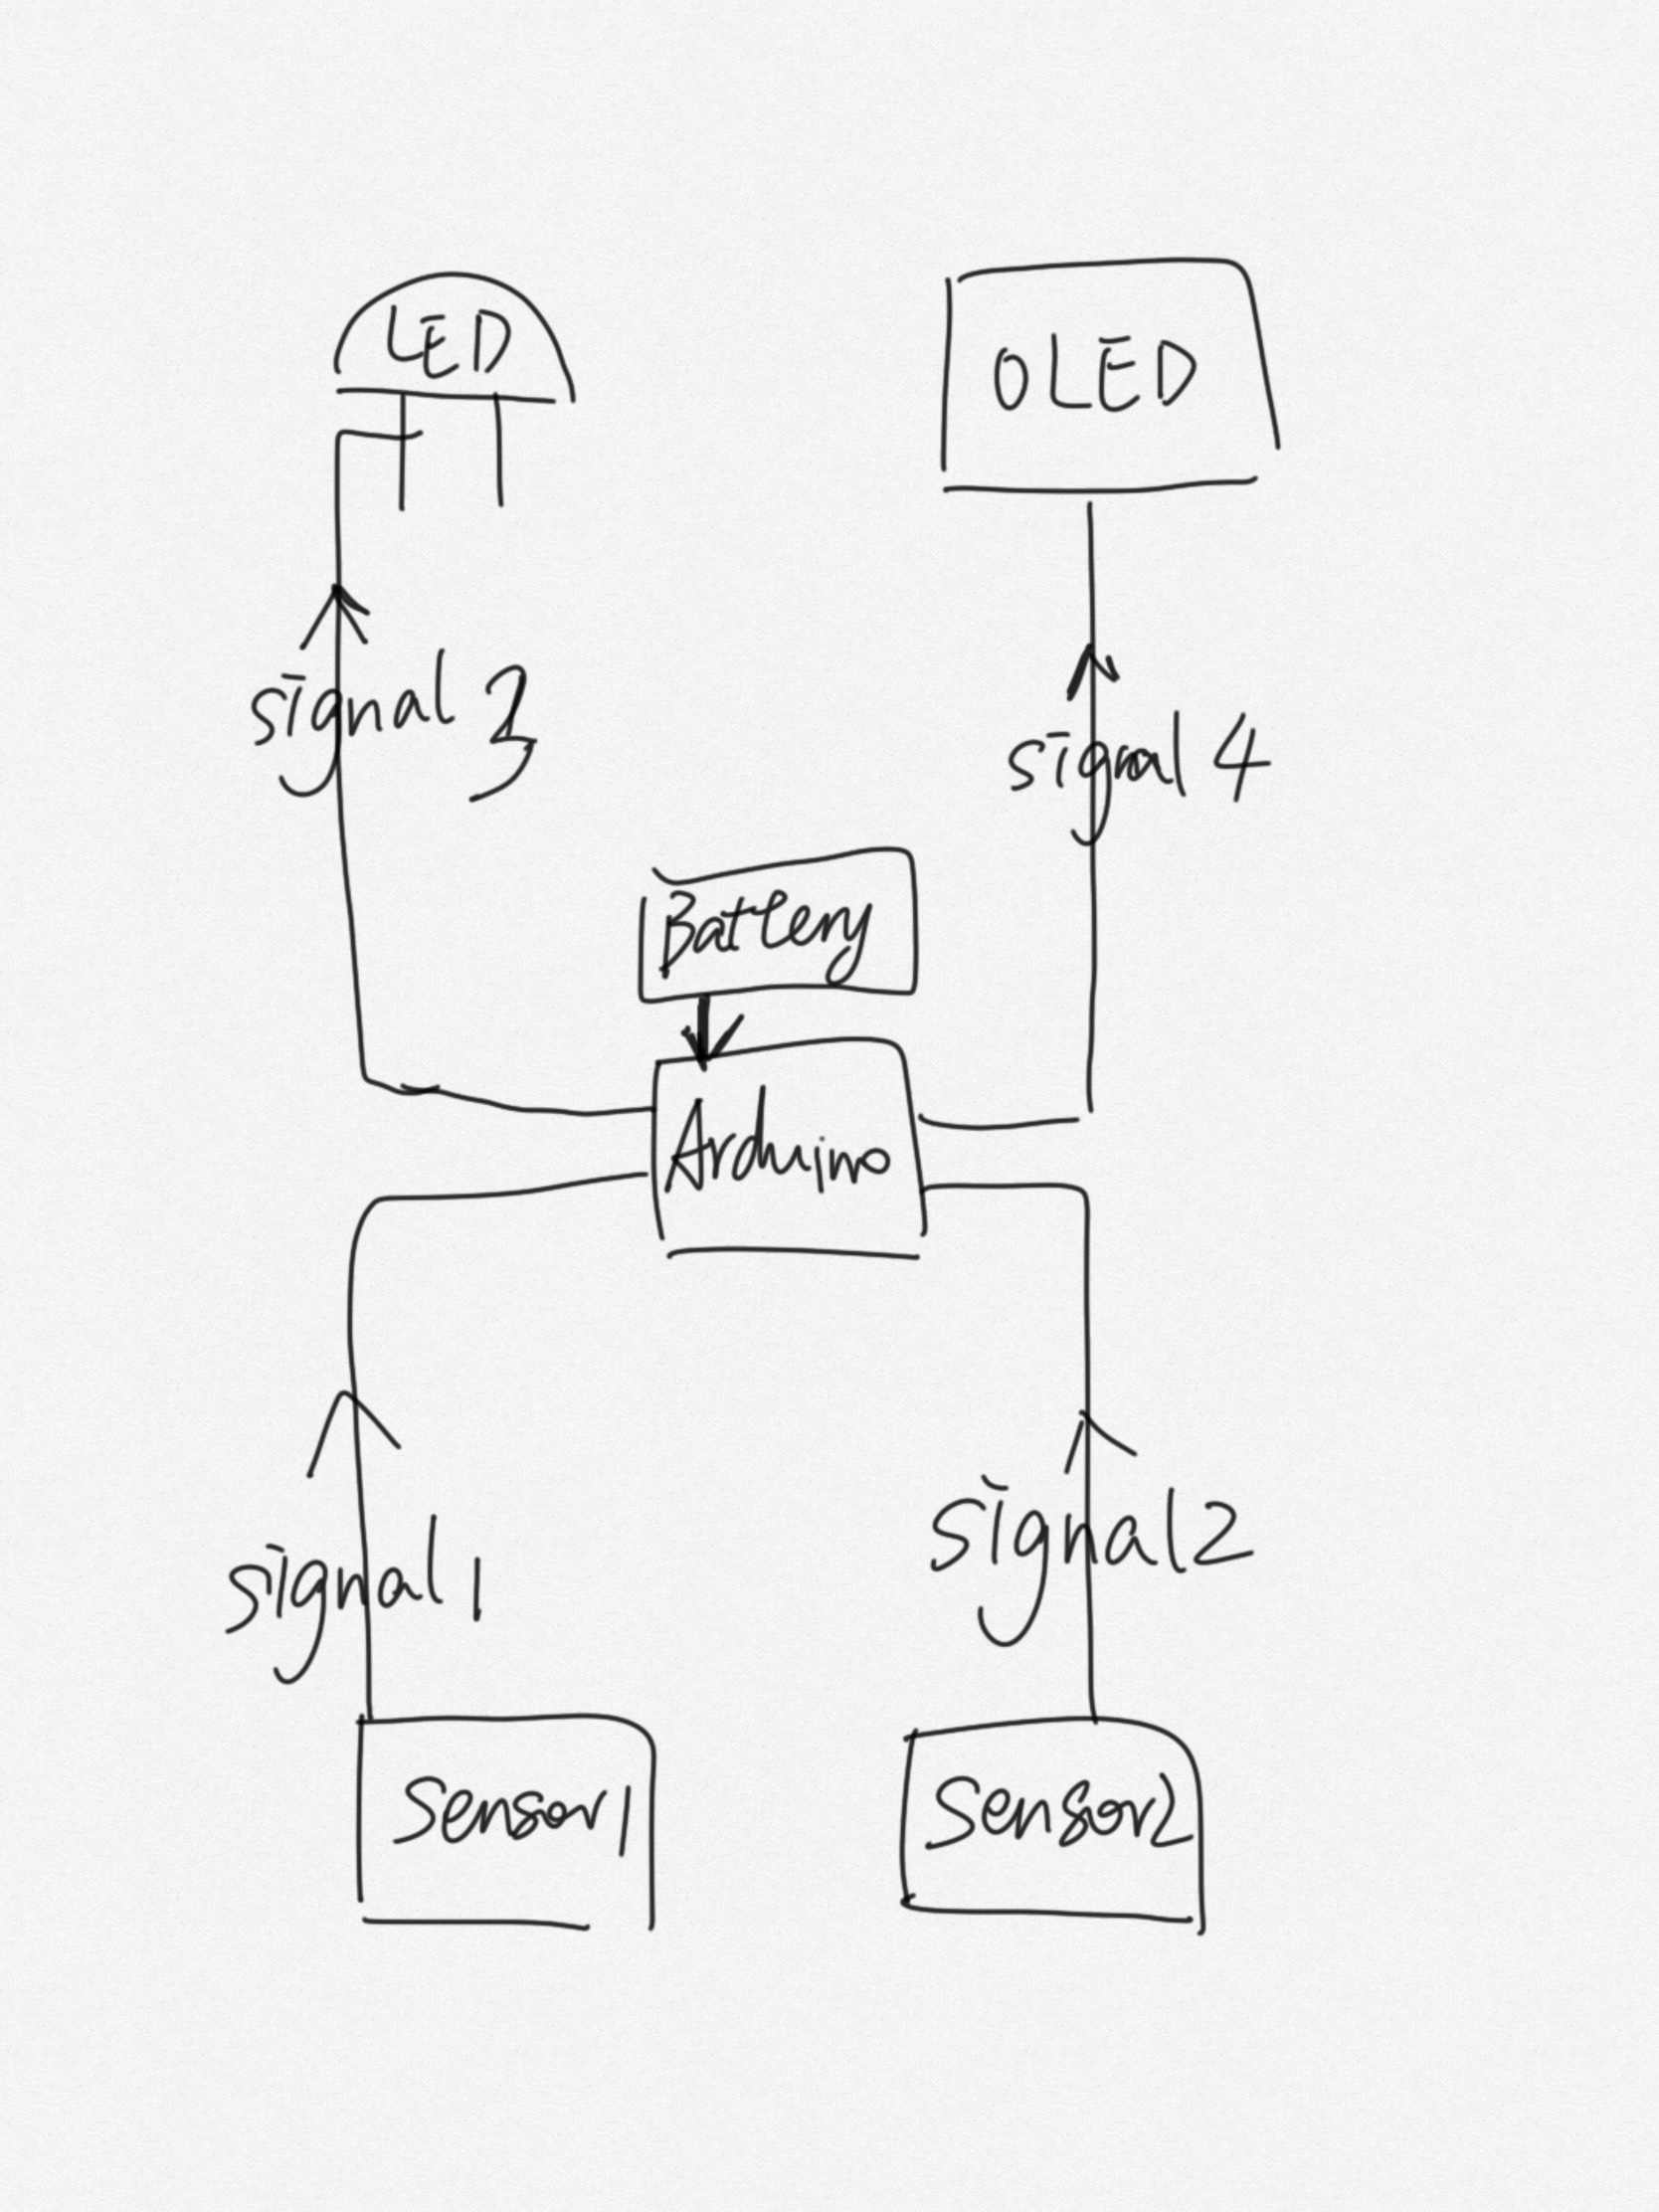 LED
OLED
signal 3
signal 4
Battery
Arduino
signal 1
signal 2
Sensor 1
Sensor 2